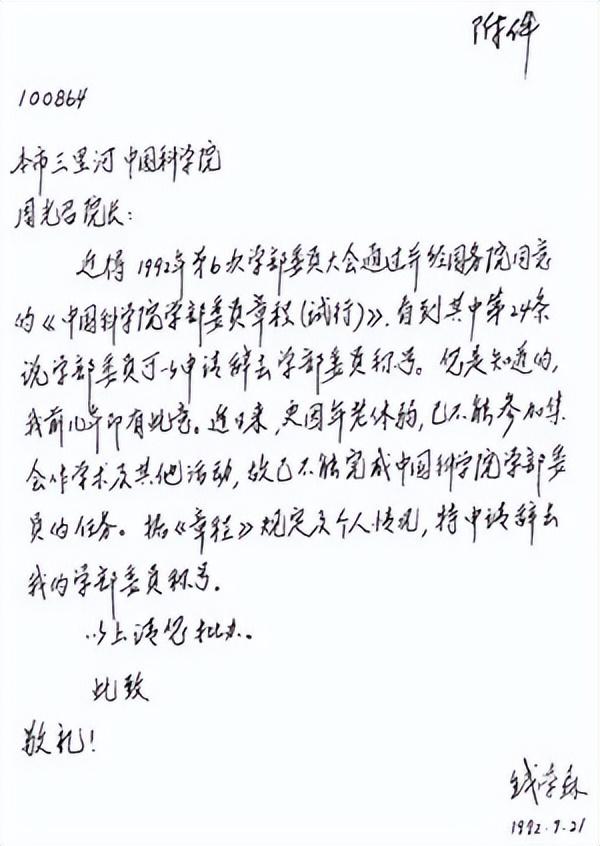 附件
100864
本市三里河 中国科学院
周光召院长:
近得1992年第6次学部委员大会通过并经国务院同意
的《中国科学院学部委员章程(试行)》,看到其中第24条
说学部委员可以申请辞去学部委员称号。您是知道的,
我前几年即有此意。近日来,更因年老体弱,已不能参加集
会作学术及其他活动,故已不能完成中国科学院学部委
员的任务。据《章程》规定及个人情况,特申请辞去
我的学部委员称号。
以上请您批办。
此致
敬礼!
钱学森
1992.9.21